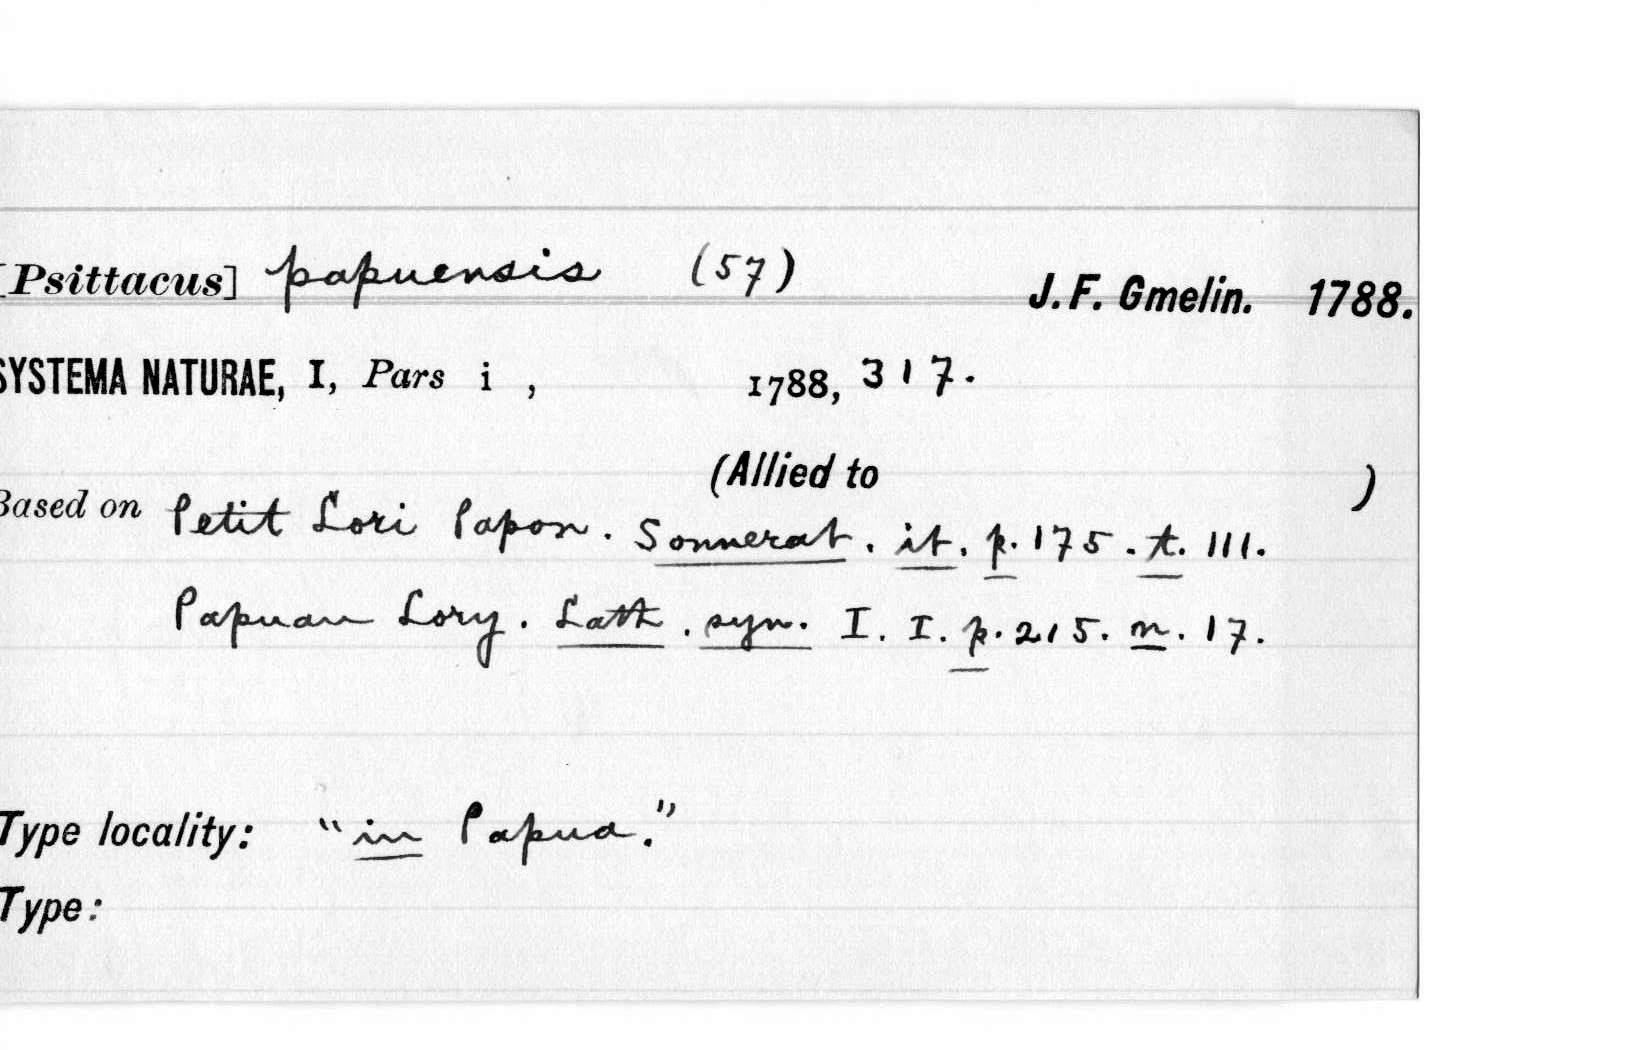 [Psittacus] papuensis (57) J. F. Gmelin. 1788.
SYSTEMA NATURAE, I, Pars i , 1788, 317.
(Allied to )
Based on Petit Lori Papon. Sonnerat. it. p. 175. t. 111.
Papuan Lory. Lath. syn. I. I. p. 215. n. 17.
Type locality: "in Papua."
Type: